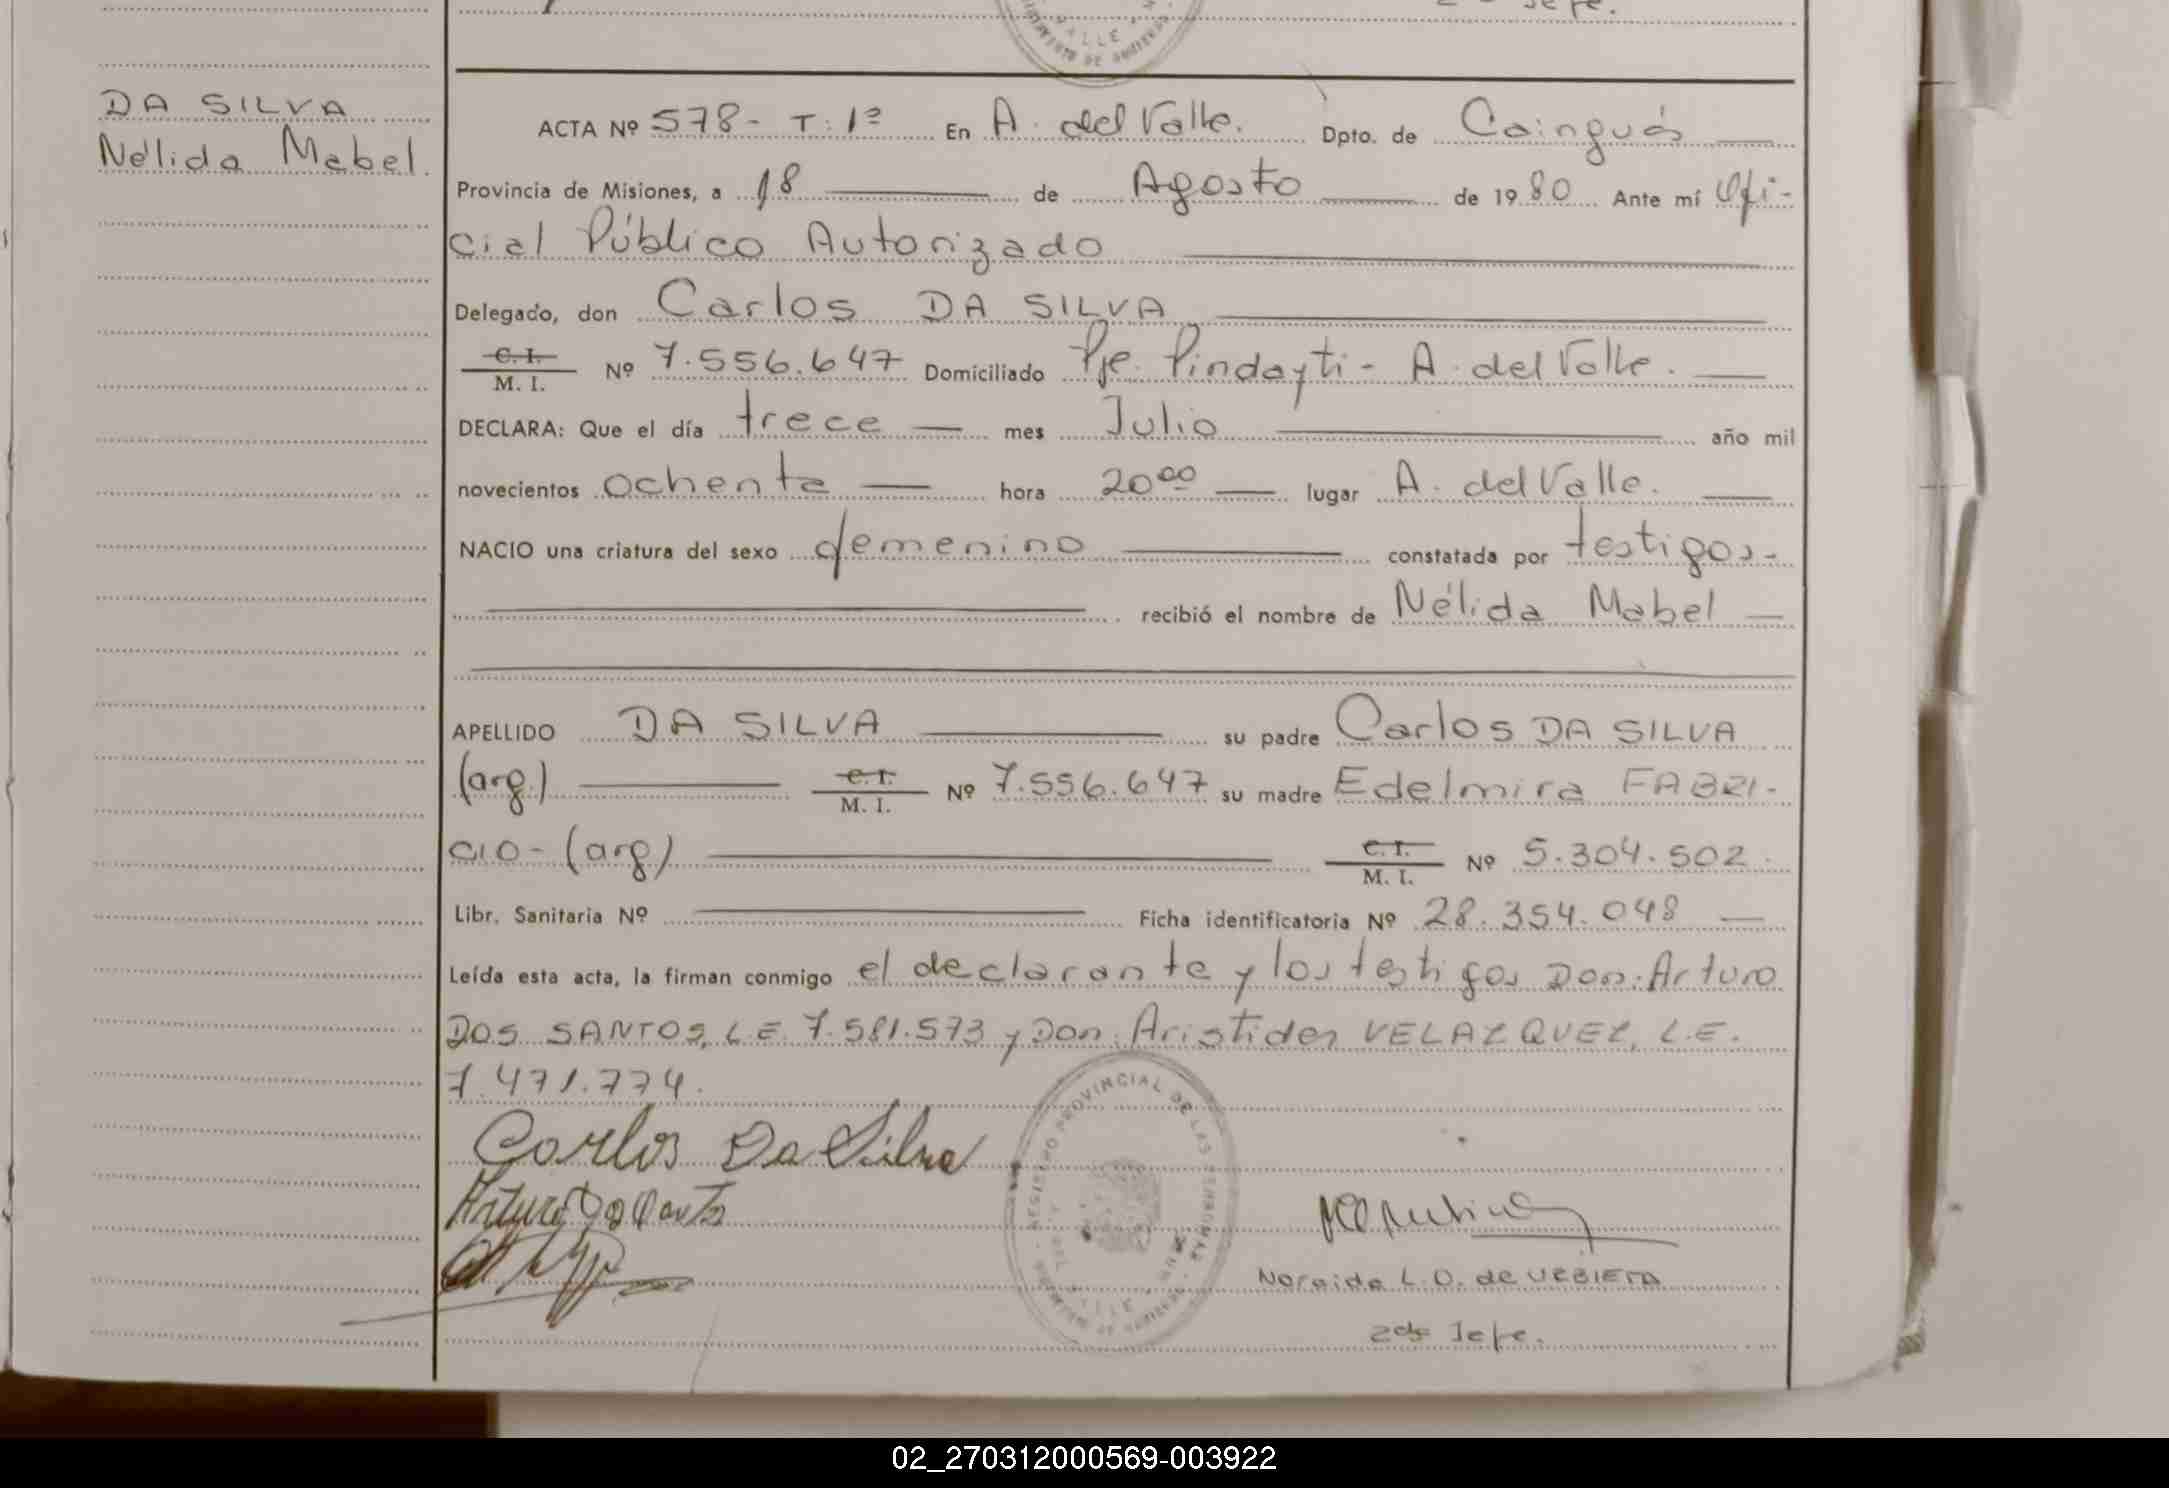 2do Jefe.
DA SILVA
Nélida Mabel.
ACTA Nº 578- T: 1º En A. del Valle. Dpto. de Cainguás
Provincia de Misiones, a 18 de Agosto de 1980 Ante mí Ofi-
cial Público Autorizado
Delegado, don Carlos DA SILVA
C. I.
M. I. Nº 7.556.647 Domiciliado Pje. Pindayti - A. del Valle.
DECLARA: Que el día trece mes Julio año mil
novecientos ochenta hora 20⁰⁰ lugar A. del Valle.
NACIO una criatura del sexo femenino constatada por testigos-
recibió el nombre de Nélida Mabel
APELLIDO DA SILVA su padre Carlos DA SILVA
(arg.) C. I. M. I. Nº 7.556.647 su madre Edelmira FABRI-
CIO- (arg) C. I. M. I. Nº 5.304.502.
Libr. Sanitaria Nº Ficha identificatoria Nº 28.354.048
Leída esta acta, la firman conmigo el declarante y los testigos Don: Arturo
DOS SANTOS, L.E. 7.581.573 y Don: Aristides VELAZQUEZ, L.E.
7.471.774.
REGISTRO PROVINCIAL DE LAS PERSONAS
Carlos Da Silva
Arturo Do Santo
Noraida L. O. de URBIETA
2do Jefe.
02_270312000569-003922